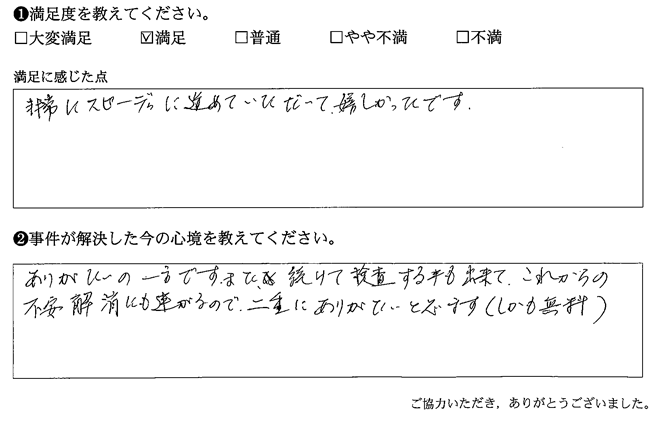 ❶満足度を教えてください。
□大変満足 ☑満足 □普通 □やや不満 □不満
満足に感じた点
非常にスピーディに進めていただいて、嬉しかったです。
❷事件が解決した今の心境を教えてください。
ありがたいの一言です。また、続けて検査する事も出来て、これからの
不安解消にも繋がるので、二重にありがたいと思います(しかも無料)
ご協力いただき，ありがとうございました。